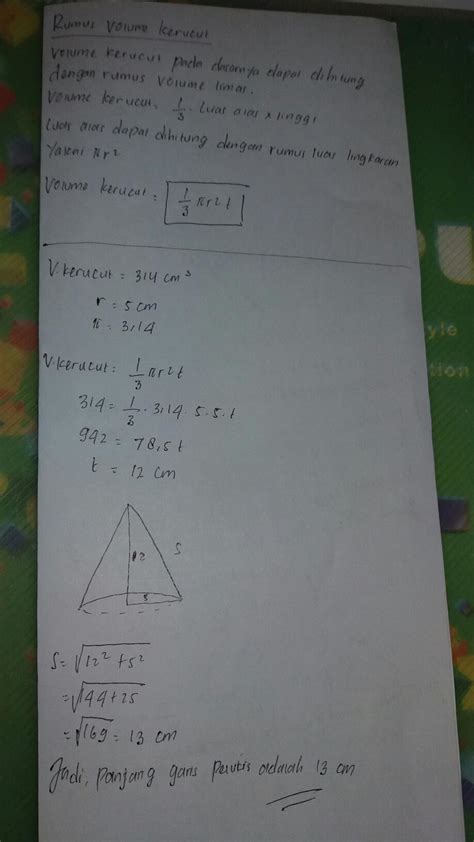 Rumus Volume Kerucut
Volume Kerucut pada dasarnya dapat dihitung
dengan rumus volume limas.
Volume kerucut: 1/3 · Luas alas x tinggi
Luas alas dapat dihitung dengan rumus luas lingkaran
Yakni πr²
Volume kerucut : 1/3 πr² t
V.kerucut = 314 cm³
r = 5 cm
π = 3,14
V.kerucut : 1/3 πr² t
314 = 1/3 · 3,14 · 5 · 5 · t
942 = 78,5 t
t = 12 cm
12
S
5
S = √12² + 5²
= √144 + 25
= √169 = 13 cm
Jadi, panjang garis pelukis adalah 13 cm
yle
tion